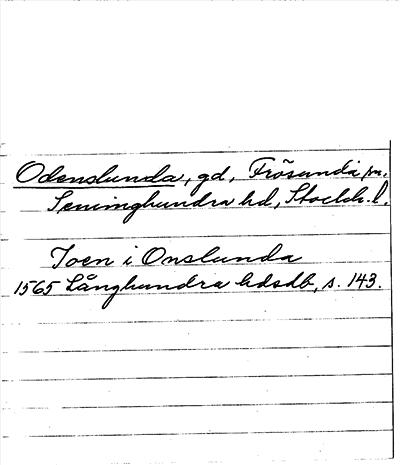 Odenslunda, gd, Frösunda sn.
Seminghundra hd, Stockh. l.
Joen i Onslunda
1565 Långhundra hdsdb, s. 143.